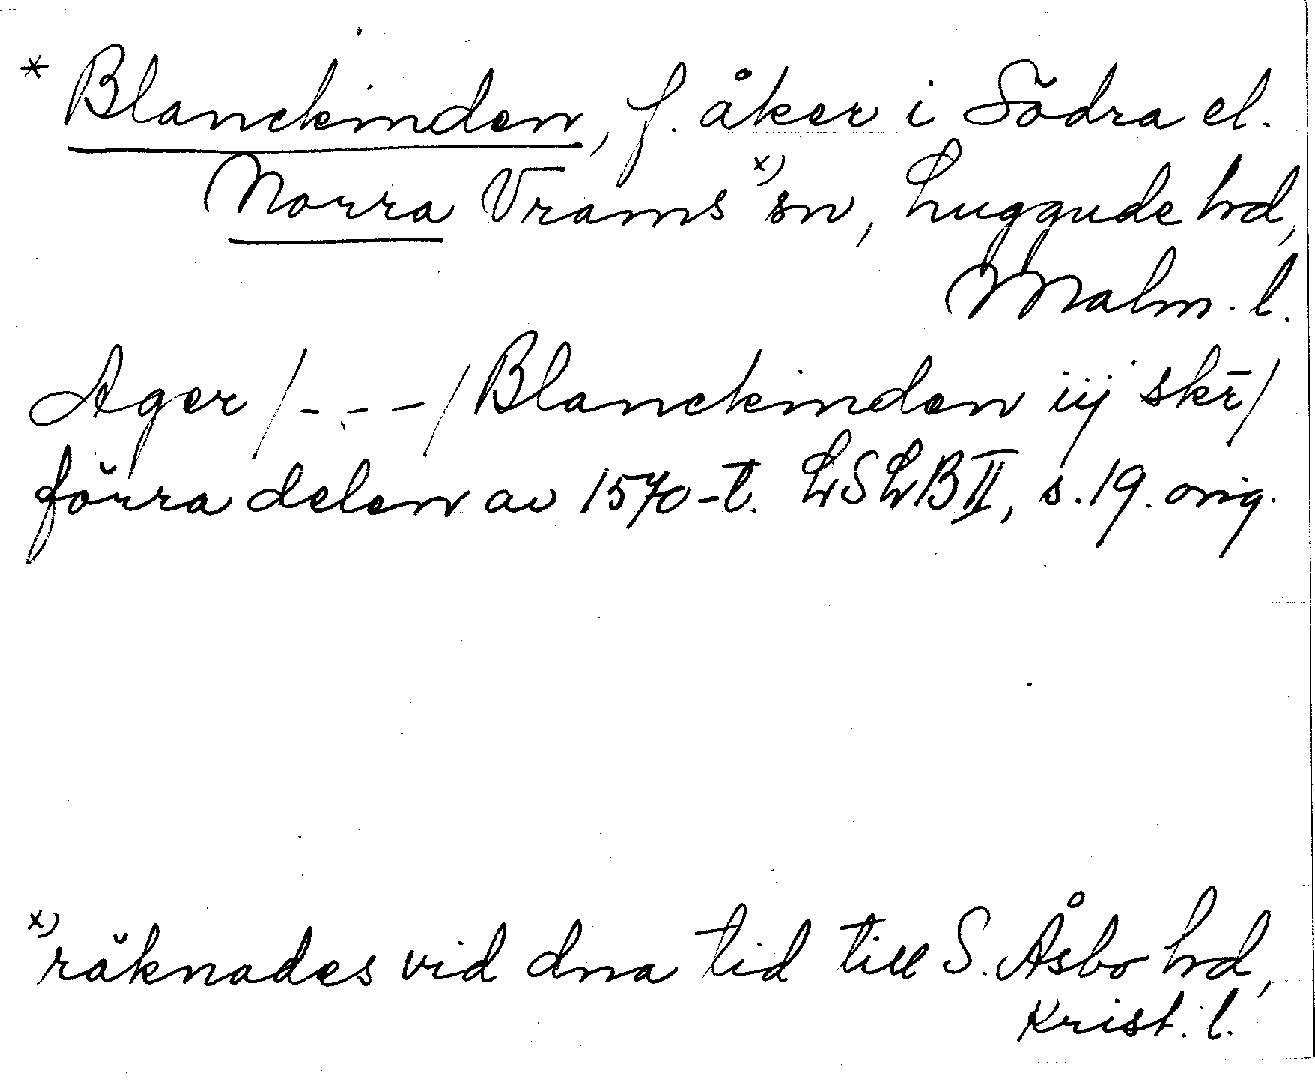 * Blanckinden, f. åker i Södra el.
Norra Vrams x) sn, Luggude hd,
Malm. l.
Ager /- - -/ Blanckinden iij skr̄/
förra delen av 1570-t. LSLB II, s. 19. orig.
x) räknades vid dna tid till S. Åsbo hd,
Krist. l.